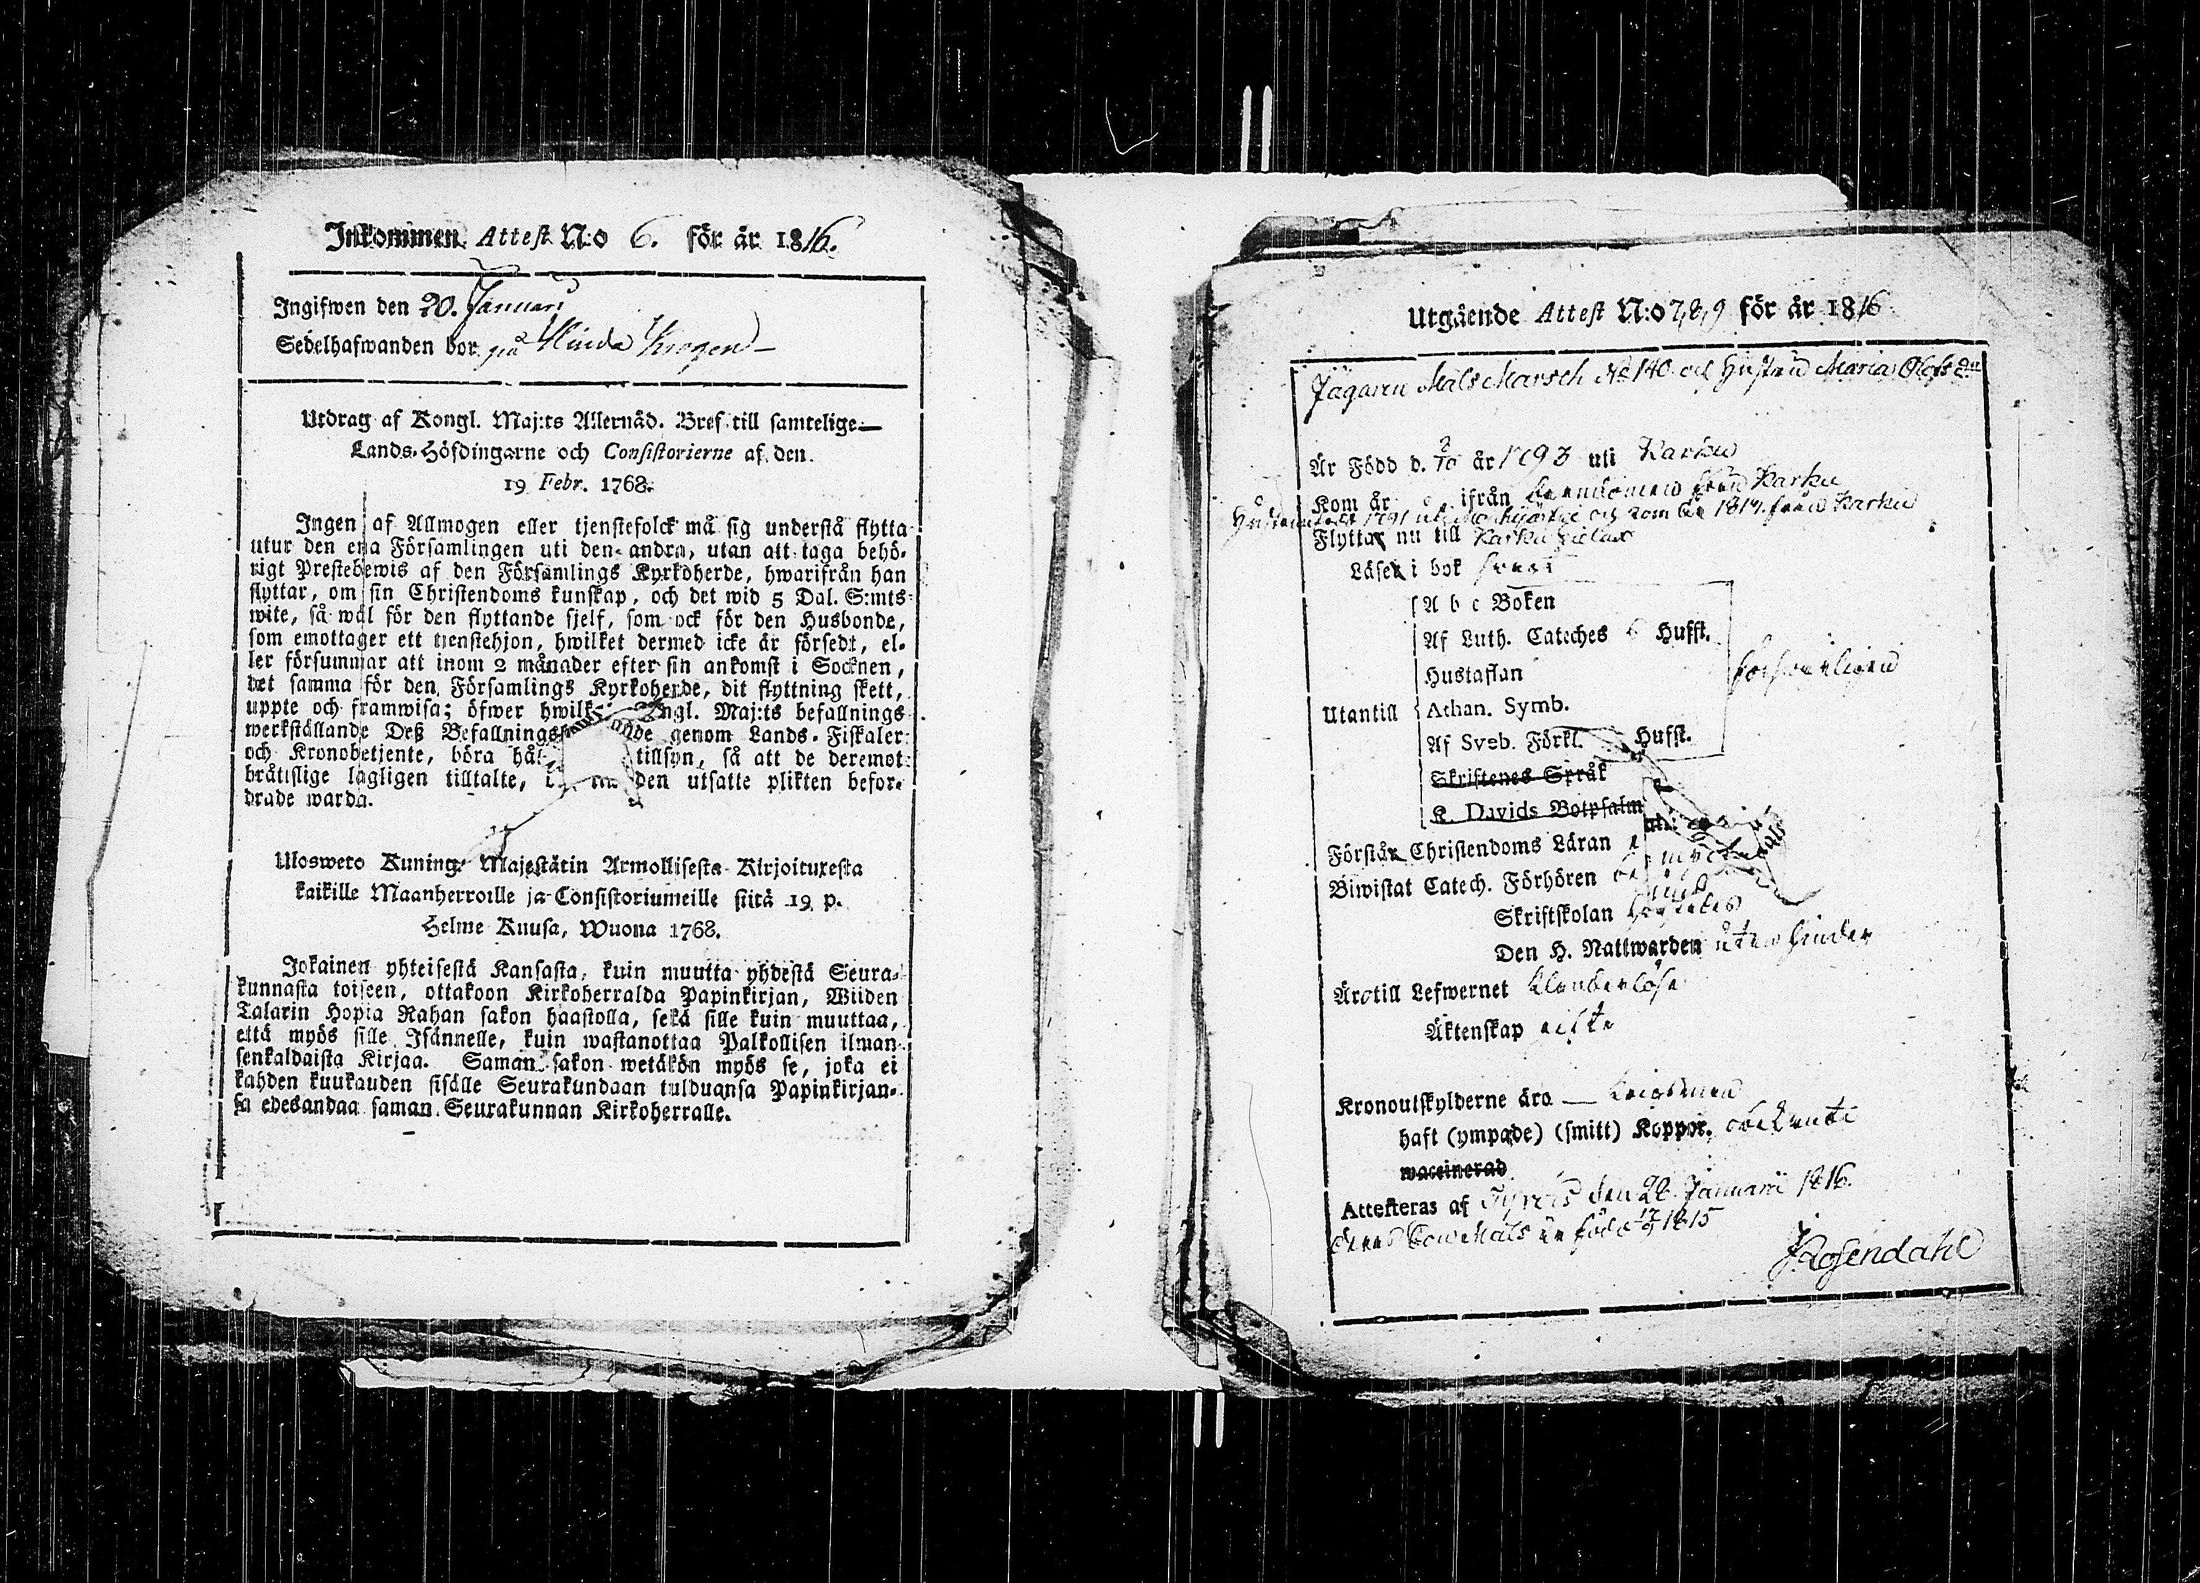 Inkommen Attest N:o 6. för år 1816.
Ingifwen den 20. Januari
Sedelhafwanden bor på Krogen
Utdrag af Kongl. Maj:ts Allernåd. Bref till samtelige
Lands-Höfdingarne och Consistorierne af den
19 Febr. 1768.
Ingen af Allmogen eller tjenstefolck må sig understå flytta
utur den ena Församlingen uti den andra, utan att taga behö-
rigt Prestebewis af den Församlings Kyrkoherde, hwarifrån han
flyttar, om sin Christendoms kunskap, och det wid 5 Dal. S:mts
wite, så wäl för den flyttande sjelf, som ock för den Husbonde,
som emottager ett tjenstehjon, hwilket dermed icke är försedt, el-
ler försummar att inom 2 månader efter sin ankomst i Socknen,
det samma för den Församlings Kyrkoherde, dit flyttning skett,
uppte och framwisa; öfwer hwilk Kongl. Maj:ts befallnings
werkställande Deß Befallnings genom Lands-Fiskaler
och Kronobetjente, böra hål tillsyn, så att de deremot
bråtislige lagligen tilltalte, den utsatte plikten befor-
drade warda.
Ulosweto Kuning. Majestätin Armollisesta Kirjoituxesta
kaikille Maanherroille ja Consistoriumeille siitä 19 p.
Helme Kuusa, Wuona 1768.
Jokainen yhteisestä Kansasta, kuin muutta yhdestä Seura-
kunnasta toiseen, ottakoon Kirkoherralda Papinkirjan, Wiiden
Talarin Hopia Rahan sakon haastolla, sekä sille kuin muuttaa,
että myös sille Isännelle, kuin wastanottaa Palkollisen ilman
senkaldaista Kirjaa. Saman sakon wetäkön myös se, joka ei
kahden kuukauden sisälle Seurakundaan tulduansa Papinkirjan-
sa edesandaa saman Seurakunnan Kirkoherralle.
Utgående Attest N:o 7,8,9 för år 1816
Jägaren Mats Marsch No 140 och Hustru Maria Olofs dr
Är Född d. 2/10 år 1793 uti Karku
Kom år ifrån från Karku
Hustrun född 1791 uti och kom år från Karku
Flyttar nu till Karku
Läser i bok
A b c Boken
Af Luth. Cateches 6 Hufst.
Hustaflan försvarligen
Utantill Athan. Symb.
Af Sveb. Förkl. Hufst.
Skriftenes Språk
K. Davids Botpsalm
Förstår Christendoms Läran
Biwistat Catech. Förhören
Skriftskolan
Den H. Nattwarden utan hinder
Äro till Lefwernet klanderlöse
Äktenskap ächte
Kronoutskylderne äro
haft (ympade) (smitt) Koppor. obekante
waccinerad
Attesteras af Tyrvis den 26 Januarii 1816.
deras Son Mats är född 1815
J Rosendahl